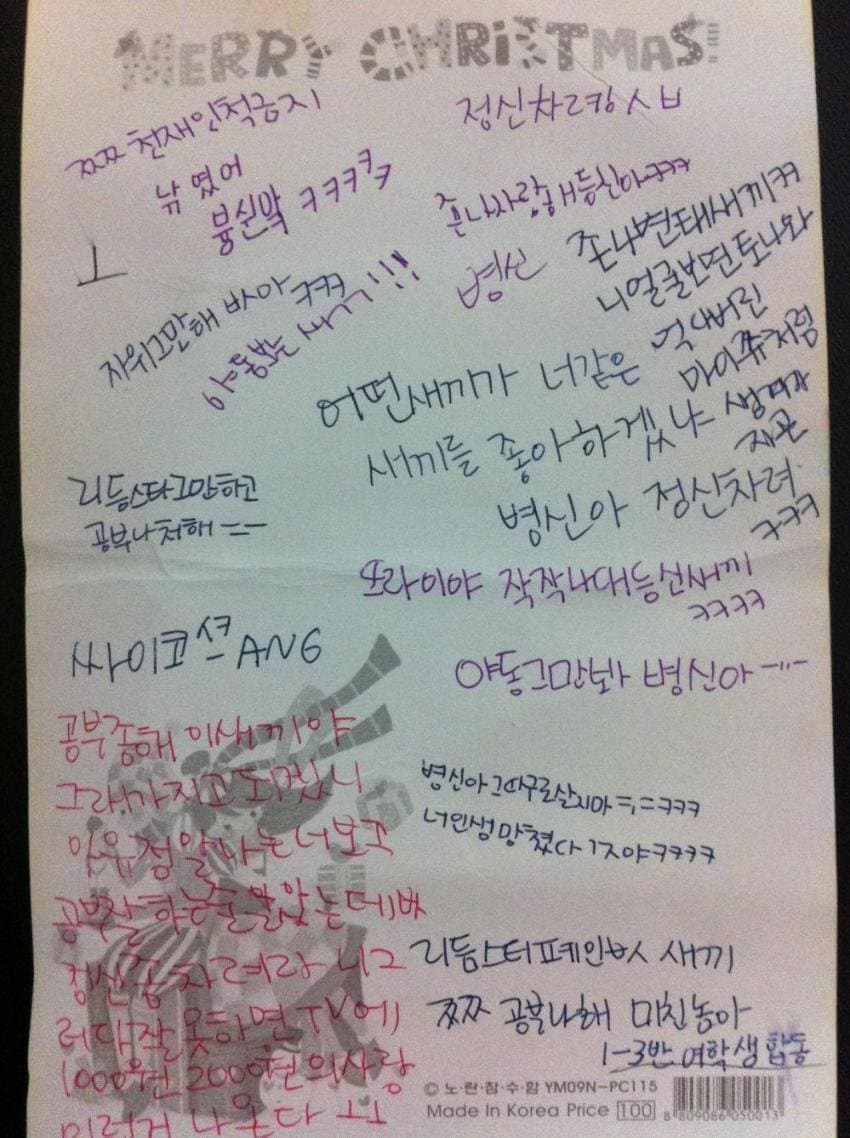 MERRY CHRISTMAS!
쯔쯔 천재인척금지
정신차려ㅋ ㅅㅂ
낚였어
븅쉰막 ㅋㅋㅋㅋㅋ
존나사랑해등신아ㅋㅋㅋ
병신
존나변태새끼ㅋㅋ
니얼굴보면토나와
자위그만해 ㅋㅋㅋ
야동보는 새끼!!!
어떤새끼가 너같은
마이쮸처럼
새끼를 좋아하겠냐 생겨가
지곤
병신아 정신차려
ㅋㅋㅋ
리듬스타그만하고
공부나쳐해 ㅡㅡ
또라이야 작작나대등신새끼
ㅋㅋㅋㅋ
싸이코 ANG
야동그만봐 병신아
공부좀해 이새끼야
그래가지고 되겠니
정말나는너보고
공부잘하는줄알았는데
정신좀 차려라 니그
러다잘못하면TV에
1000원 200원의사랑
이런거 나온다 ㅜㅜ
병신아그따구로살지마 ㅋㅋㅋ
너인생망쳤다 ㅋㅋㅋㅋ
리듬스타페인ㅄ 새끼
쯔쯔 공부나해 미친놈아
1-3반 여학생 합동
© 노·란·잠·수·함 YM09N-PC115
Made In Korea Price 100
8 809086 050013